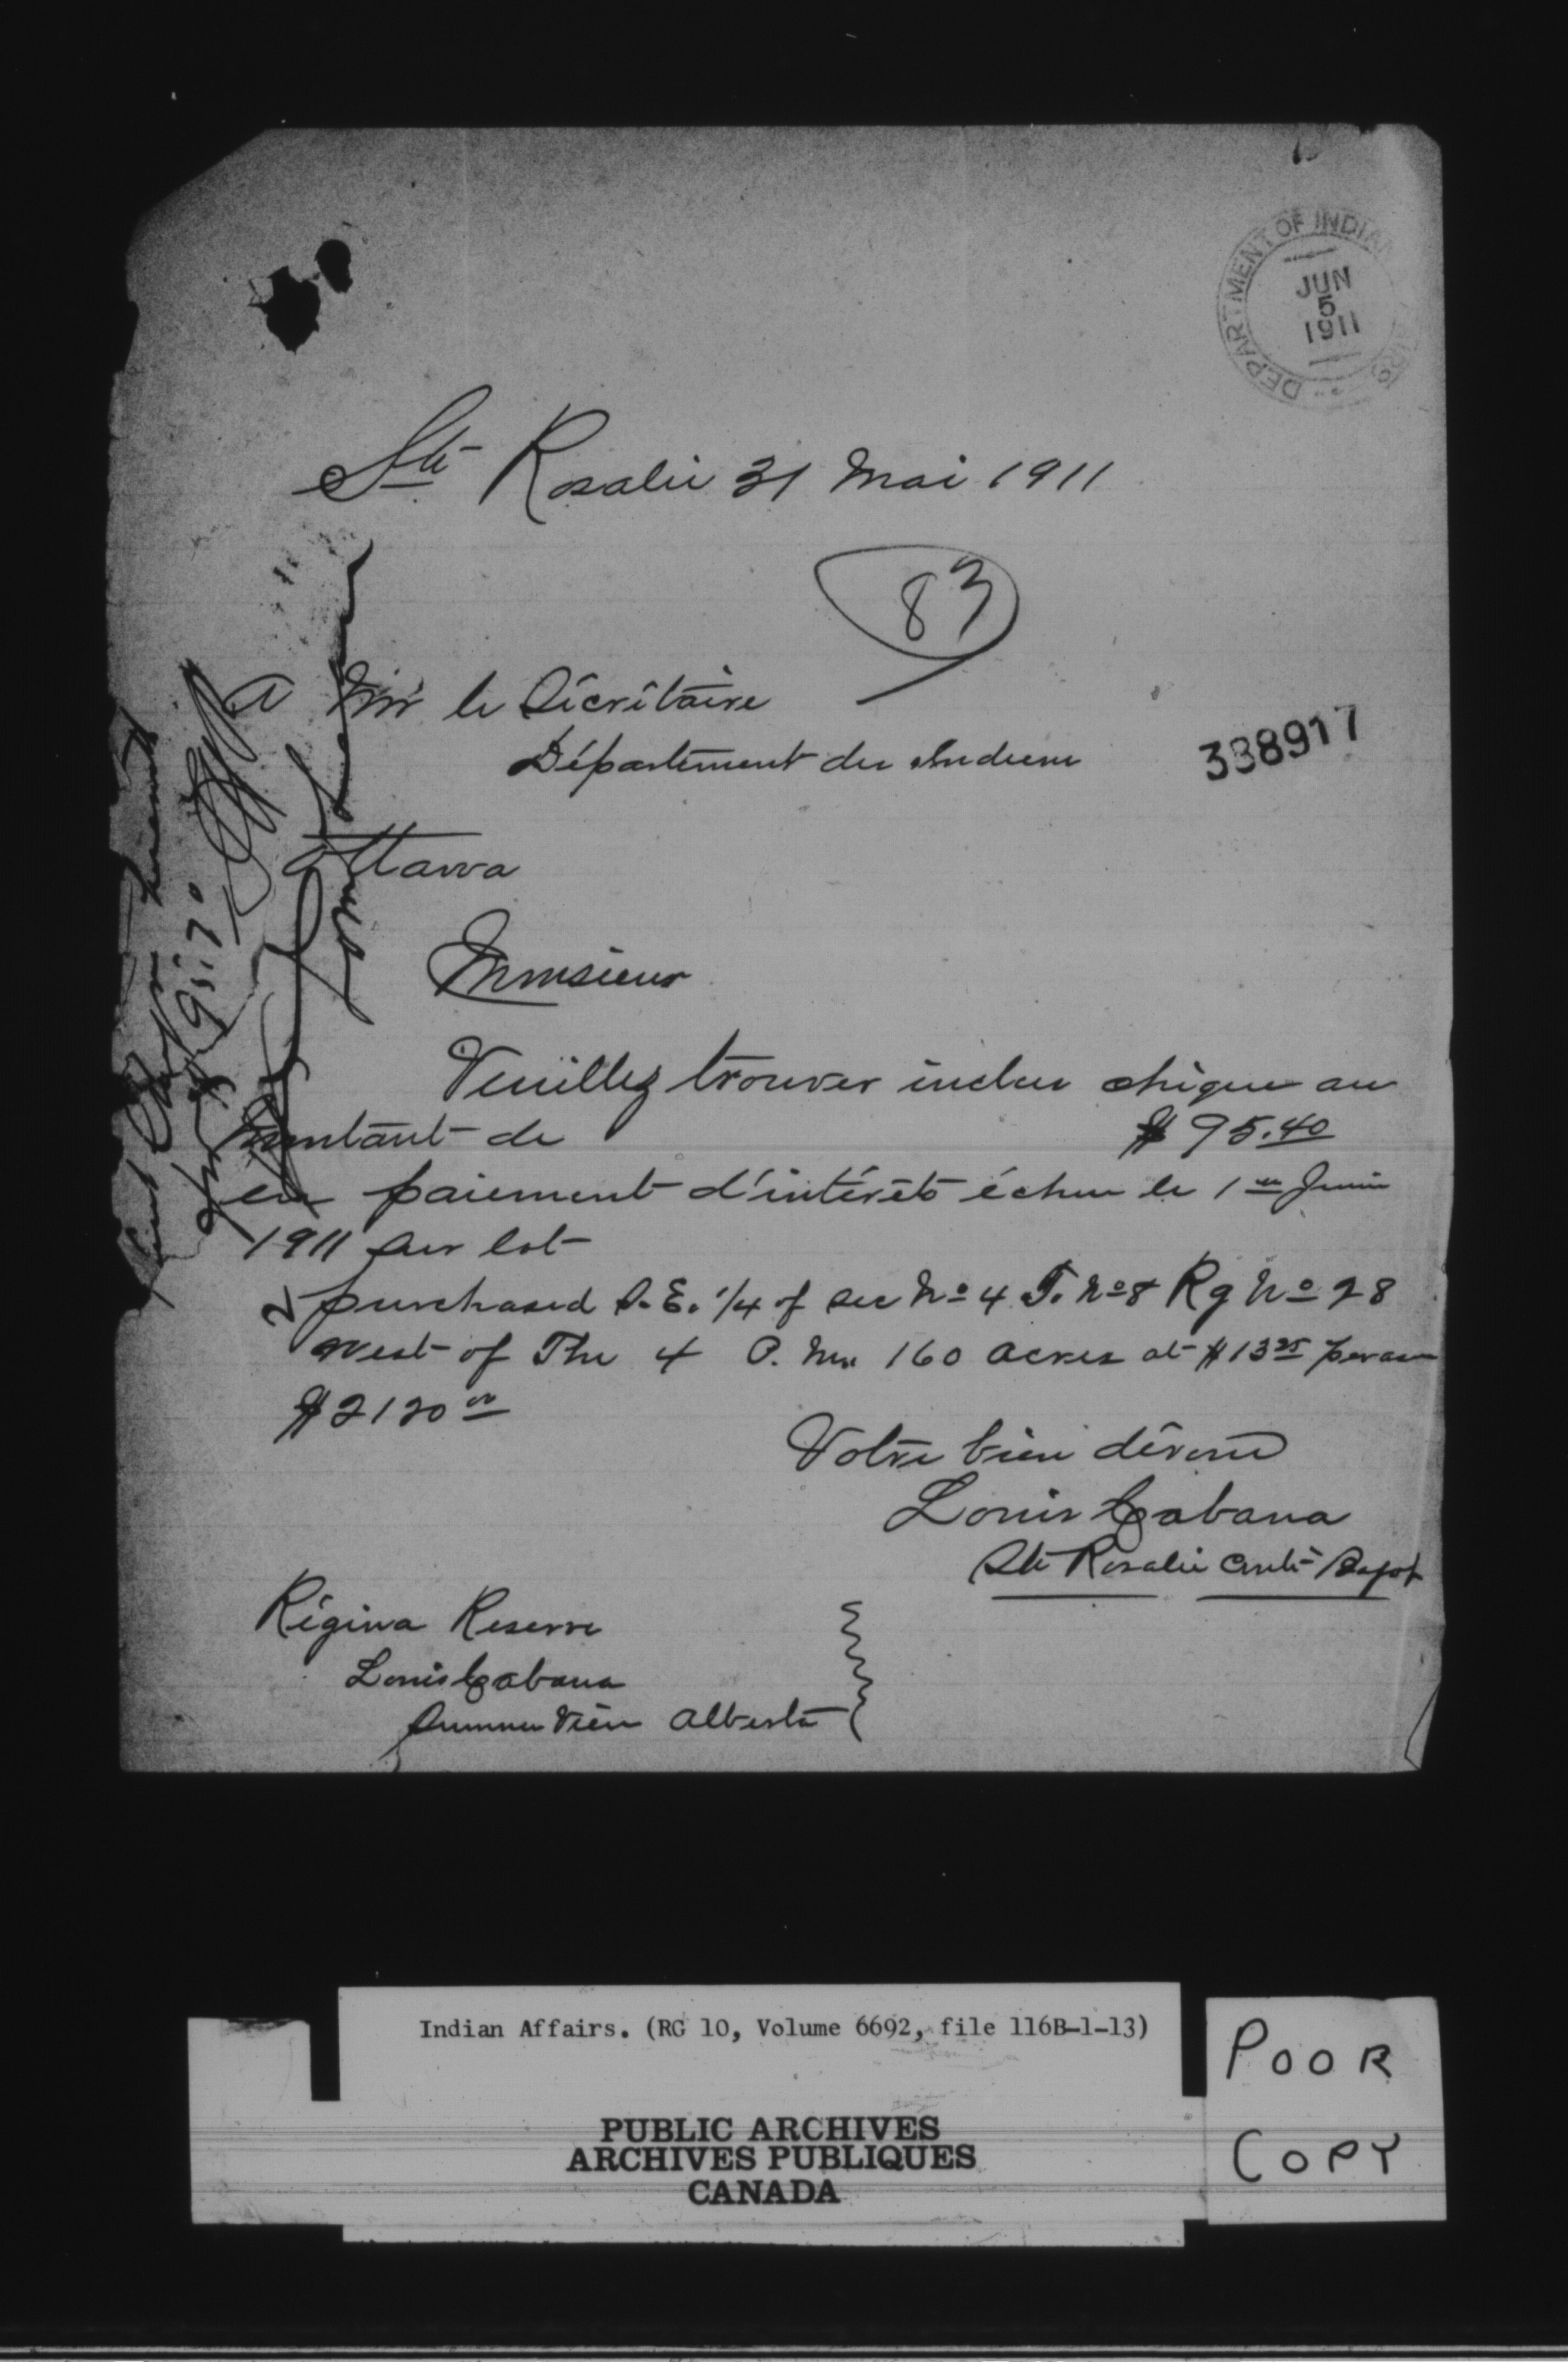 DEPARTMENT OF INDIAN
JUN
5
1911
Ste Rosalie 31 Mai 1911
83
a Mr le Sécrétaire
Département des Indiens
338917
Ottawa
Monsieur
Veuillez trouver inclus chèque au
Montant de $95.40
en paiement d'intérêts échus le 1er Juin
1911 sur lot
purchased S.E. 1/4 of sec No 4 T. No 8 Rg No 28
West of The 4 P. M. 160 acres at $13 25 per acre
$2120 00
Votre bien dévoué
Louis Cabana
Ste Rosalie Comté Bagot
Régina Reserve
Louis Cabana
Summer View Alberta
Indian Affairs. (RG 10, Volume 6692, file 116B-1-13)
PUBLIC ARCHIVES
ARCHIVES PUBLIQUES
CANADA
POOR
COPY